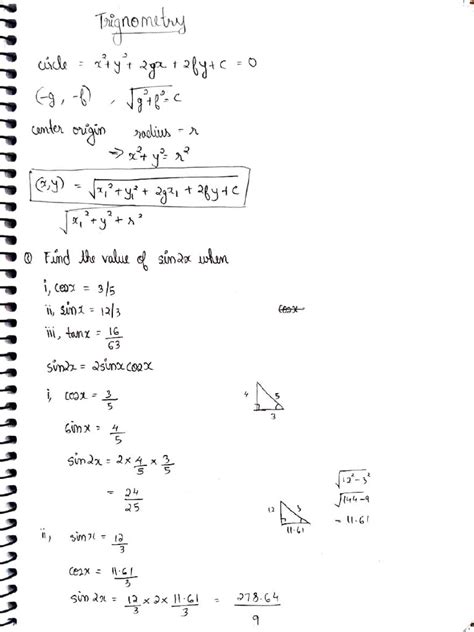 Trignometry
circle = x²+y²+2gx+2fy+c = 0
(-g, -f) , √g²+f²-c
center origin radius - r
⇒ x²+y²=r²
(x,y) = √x₁²+y₁²+2gx₁+2fy+c
√x₁²+y²+r²
① Find the value of sin2x when
i, cosx = 3/5
ii, sinx = 12/3
cosx
iii, tanx = 16/63
sin2x = 2sinxcosx
i, cosx = 3/5
4 5 3
sinx = 4/5
sin2x = 2 × 4/5 × 3/5
= 24/25
√12²-3²
√144-9
= 11.61
12 3 11.61
ii, sinx = 12/3
cosx = 11.61/3
sin2x = 12/3 × 2 × 11.61/3 = 278.64/9